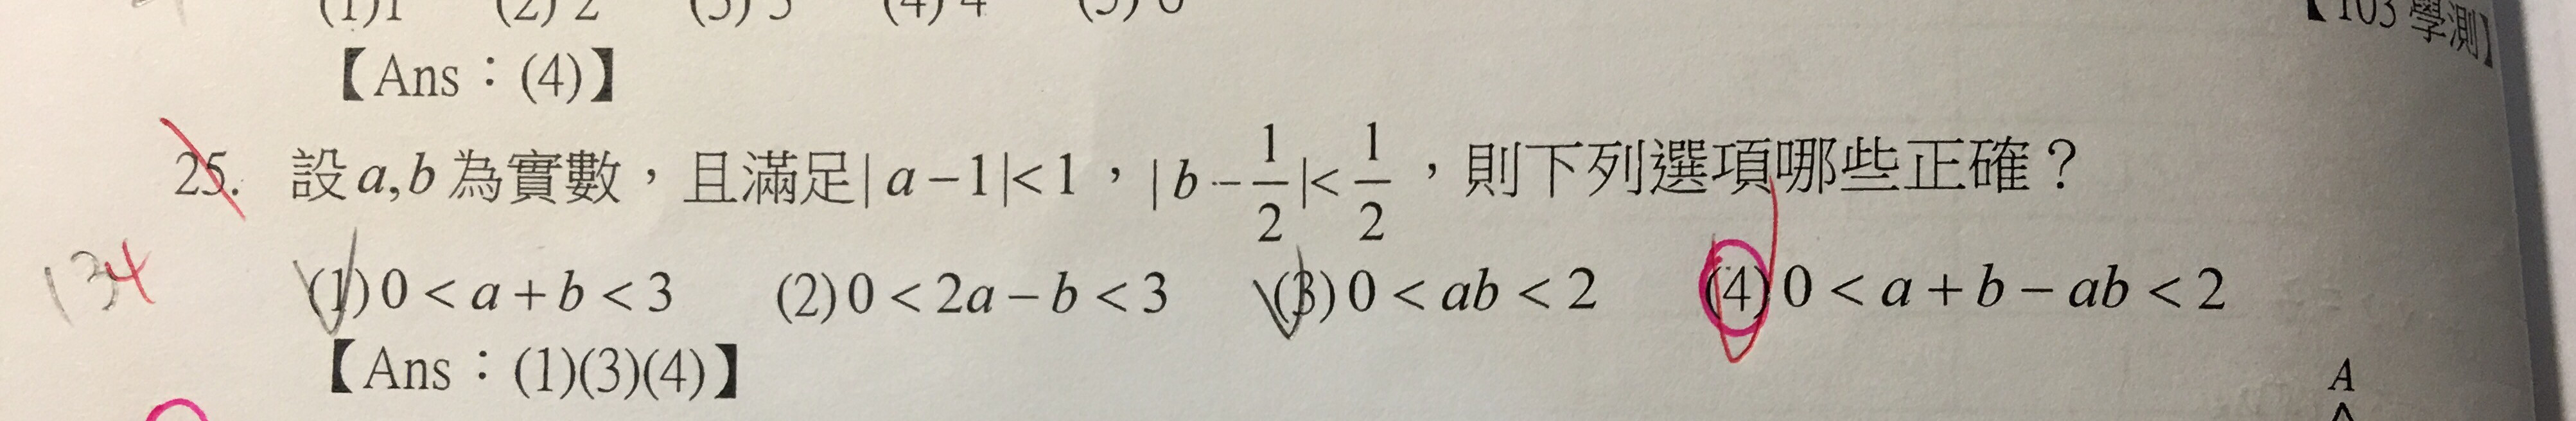 (1)1 (2) 2 (3) 3 (4) 4
【103 學測】
【Ans：(4)】
25. 設 a,b 為實數，且滿足 | a − 1 |< 1，| b − 1/2 |< 1/2，則下列選項哪些正確？
134 (1) 0 < a + b < 3 (2) 0 < 2a − b < 3 (3) 0 < ab < 2 (4) 0 < a + b − ab < 2
【Ans：(1)(3)(4)】
A